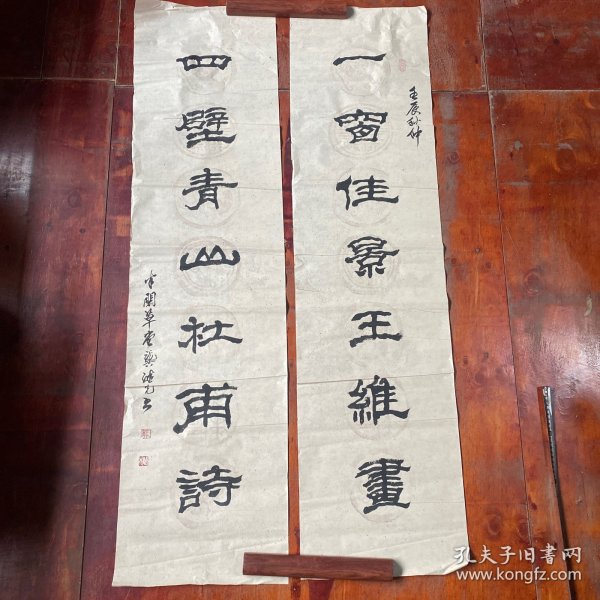 一窗佳景王維畫
壬辰秋仲
四壁青山杜甫詩
半閑草堂龔
孔夫子旧书网
www.kongfz.com